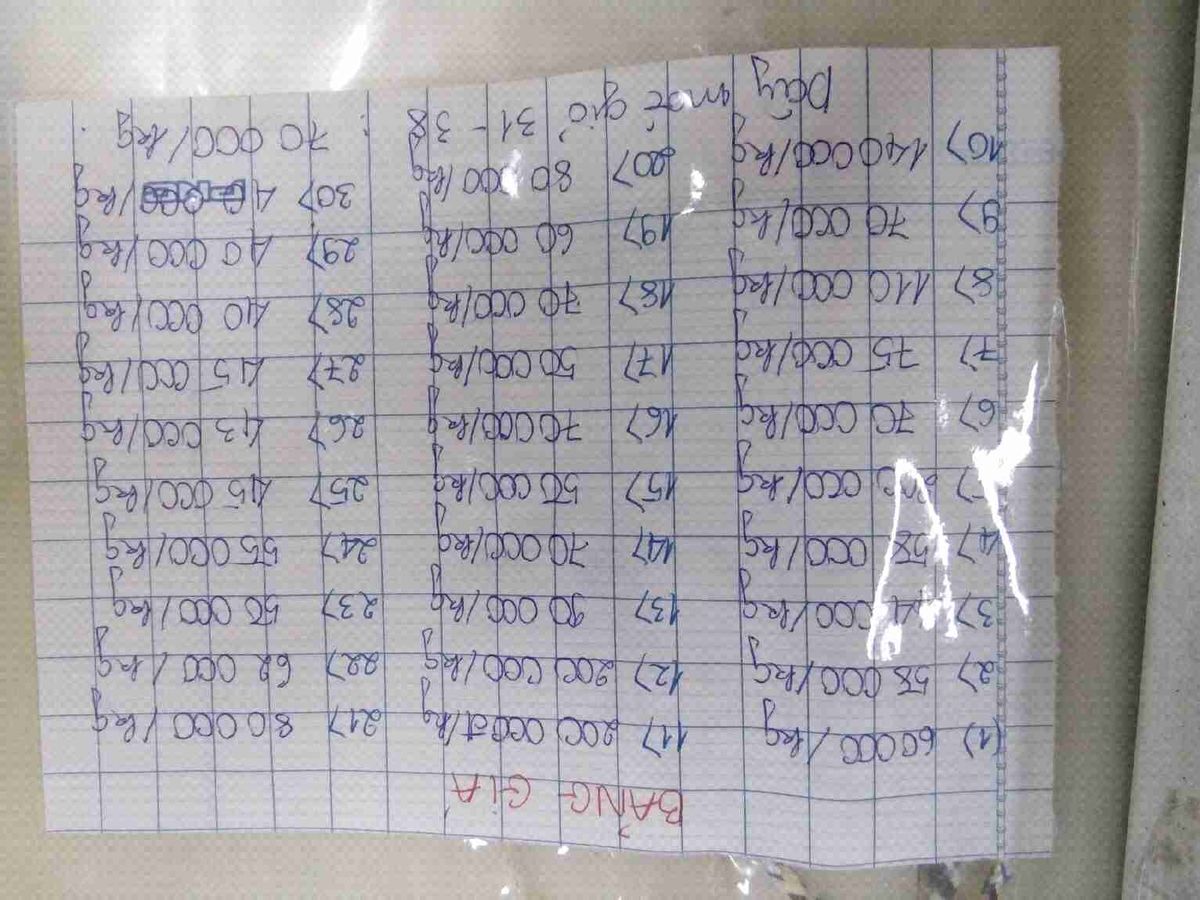 BẢNG GIÁ
(1) 60 000/kg 11) 200 000đ/kg 21) 80 000/kg
2) 58 000/kg 12) 200 000/kg 22) 62 000/kg
3) 000/kg 13) 90 000/kg 23) 50 000/kg
4) 58 000/kg 14) 70 000/kg 24) 55 000/kg
5) 000/kg 15) 50 000/kg 25) 45 000/kg
6) 70 000/kg 16) 70 000/kg 26) 43 000/kg
7) 75 000/kg 17) 50 000/kg 27) 45 000/kg
8) 110 000/kg 18) 70 000/kg 28) 40 000/kg
9) 70 000/kg 19) 60 000/kg 29) 40 000/kg
10) 140 000/kg 20) 80 000/kg 30) 4 /kg
Dãy móc giỏ 31 - 38 : 70 000/kg.